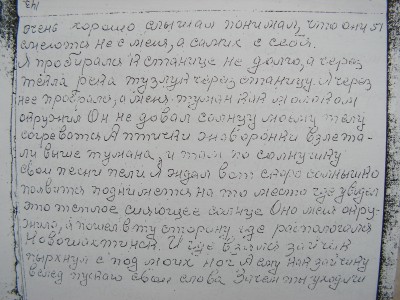 очень хорошо слышал понимал, что они 51
смеются не с меня, а самих с себя.
Я пробирался в станице не долго, а через
текла река тузлук через станицу. Я через
нее пробрался, а меня туман как молоком
окружил Он не довал солнцу моему телу
согреватся А птички жаворонки взлета-
ли выше тумана, и там по солнушку
свои песни пели Я ждал вот скоро солнышко
появится поднимется на то место где увидел
это теплое сияющее солнце Оно меня окру-
жило, я пошел в ту сторону где расположился
Новошахтинск. И где взялся зайчик
пырхнул с под моих ног А ему как зайчику
вслед пускаю свои слова Зачем ты уходиш